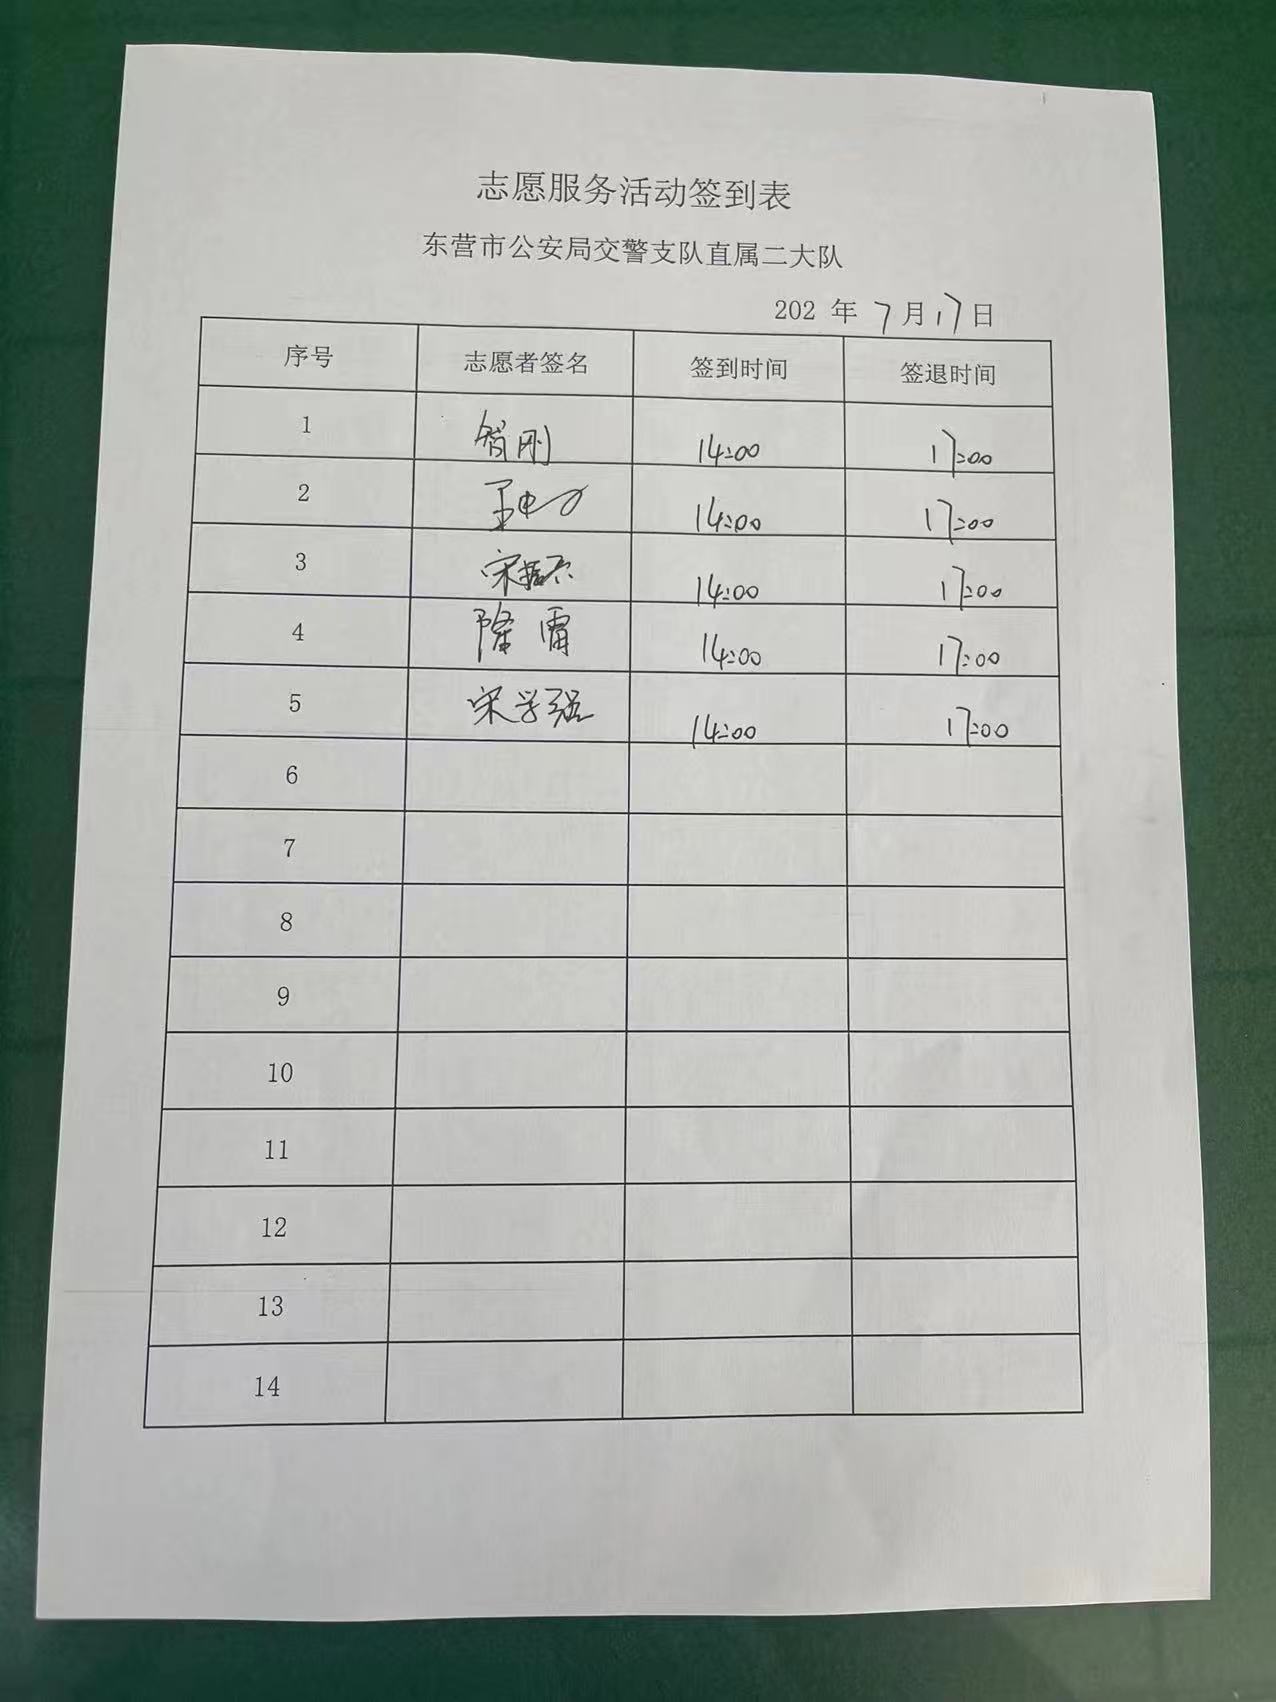 志愿服务活动签到表
东营市公安局交警支队直属二大队
202 年 7月17日
序号 志愿者签名 签到时间 签退时间
1 智刚 14:00 17:00
2 14:00 17:00
3 宋 14:00 17:00
4 隆霄 14:00 17:00
5 宋学强 14:00 17:00
6
7
8
9
10
11
12
13
14